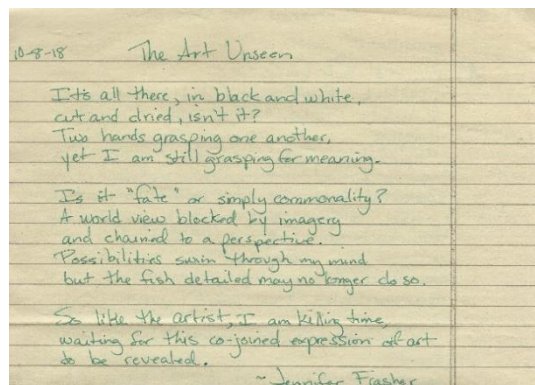 10-8-18 The Art Unseen
It's all there, in black and white,
cut and dried, isn't it?
Two hands grasping one another,
yet I am still grasping for meaning.
Is it "fate" or simply commonality?
A world view blocked by imagery
and chained to a perspective.
Possibilities swim through my mind
but the fish detailed may no longer do so.
So like the artist, I am killing time,
waiting for this co-joined expression of art
to be revealed.
~ Jennifer Frasher